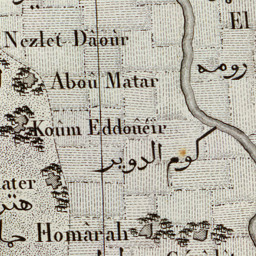 El
Nezlet Dâoùr
رومه
Aboû Matar
Koûm Eddoûéïr
كوم الدوير
ater
Homàrah